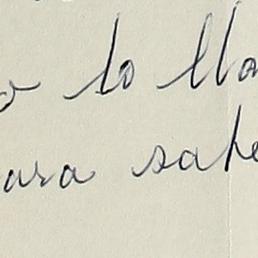 o lo lla
para sabe